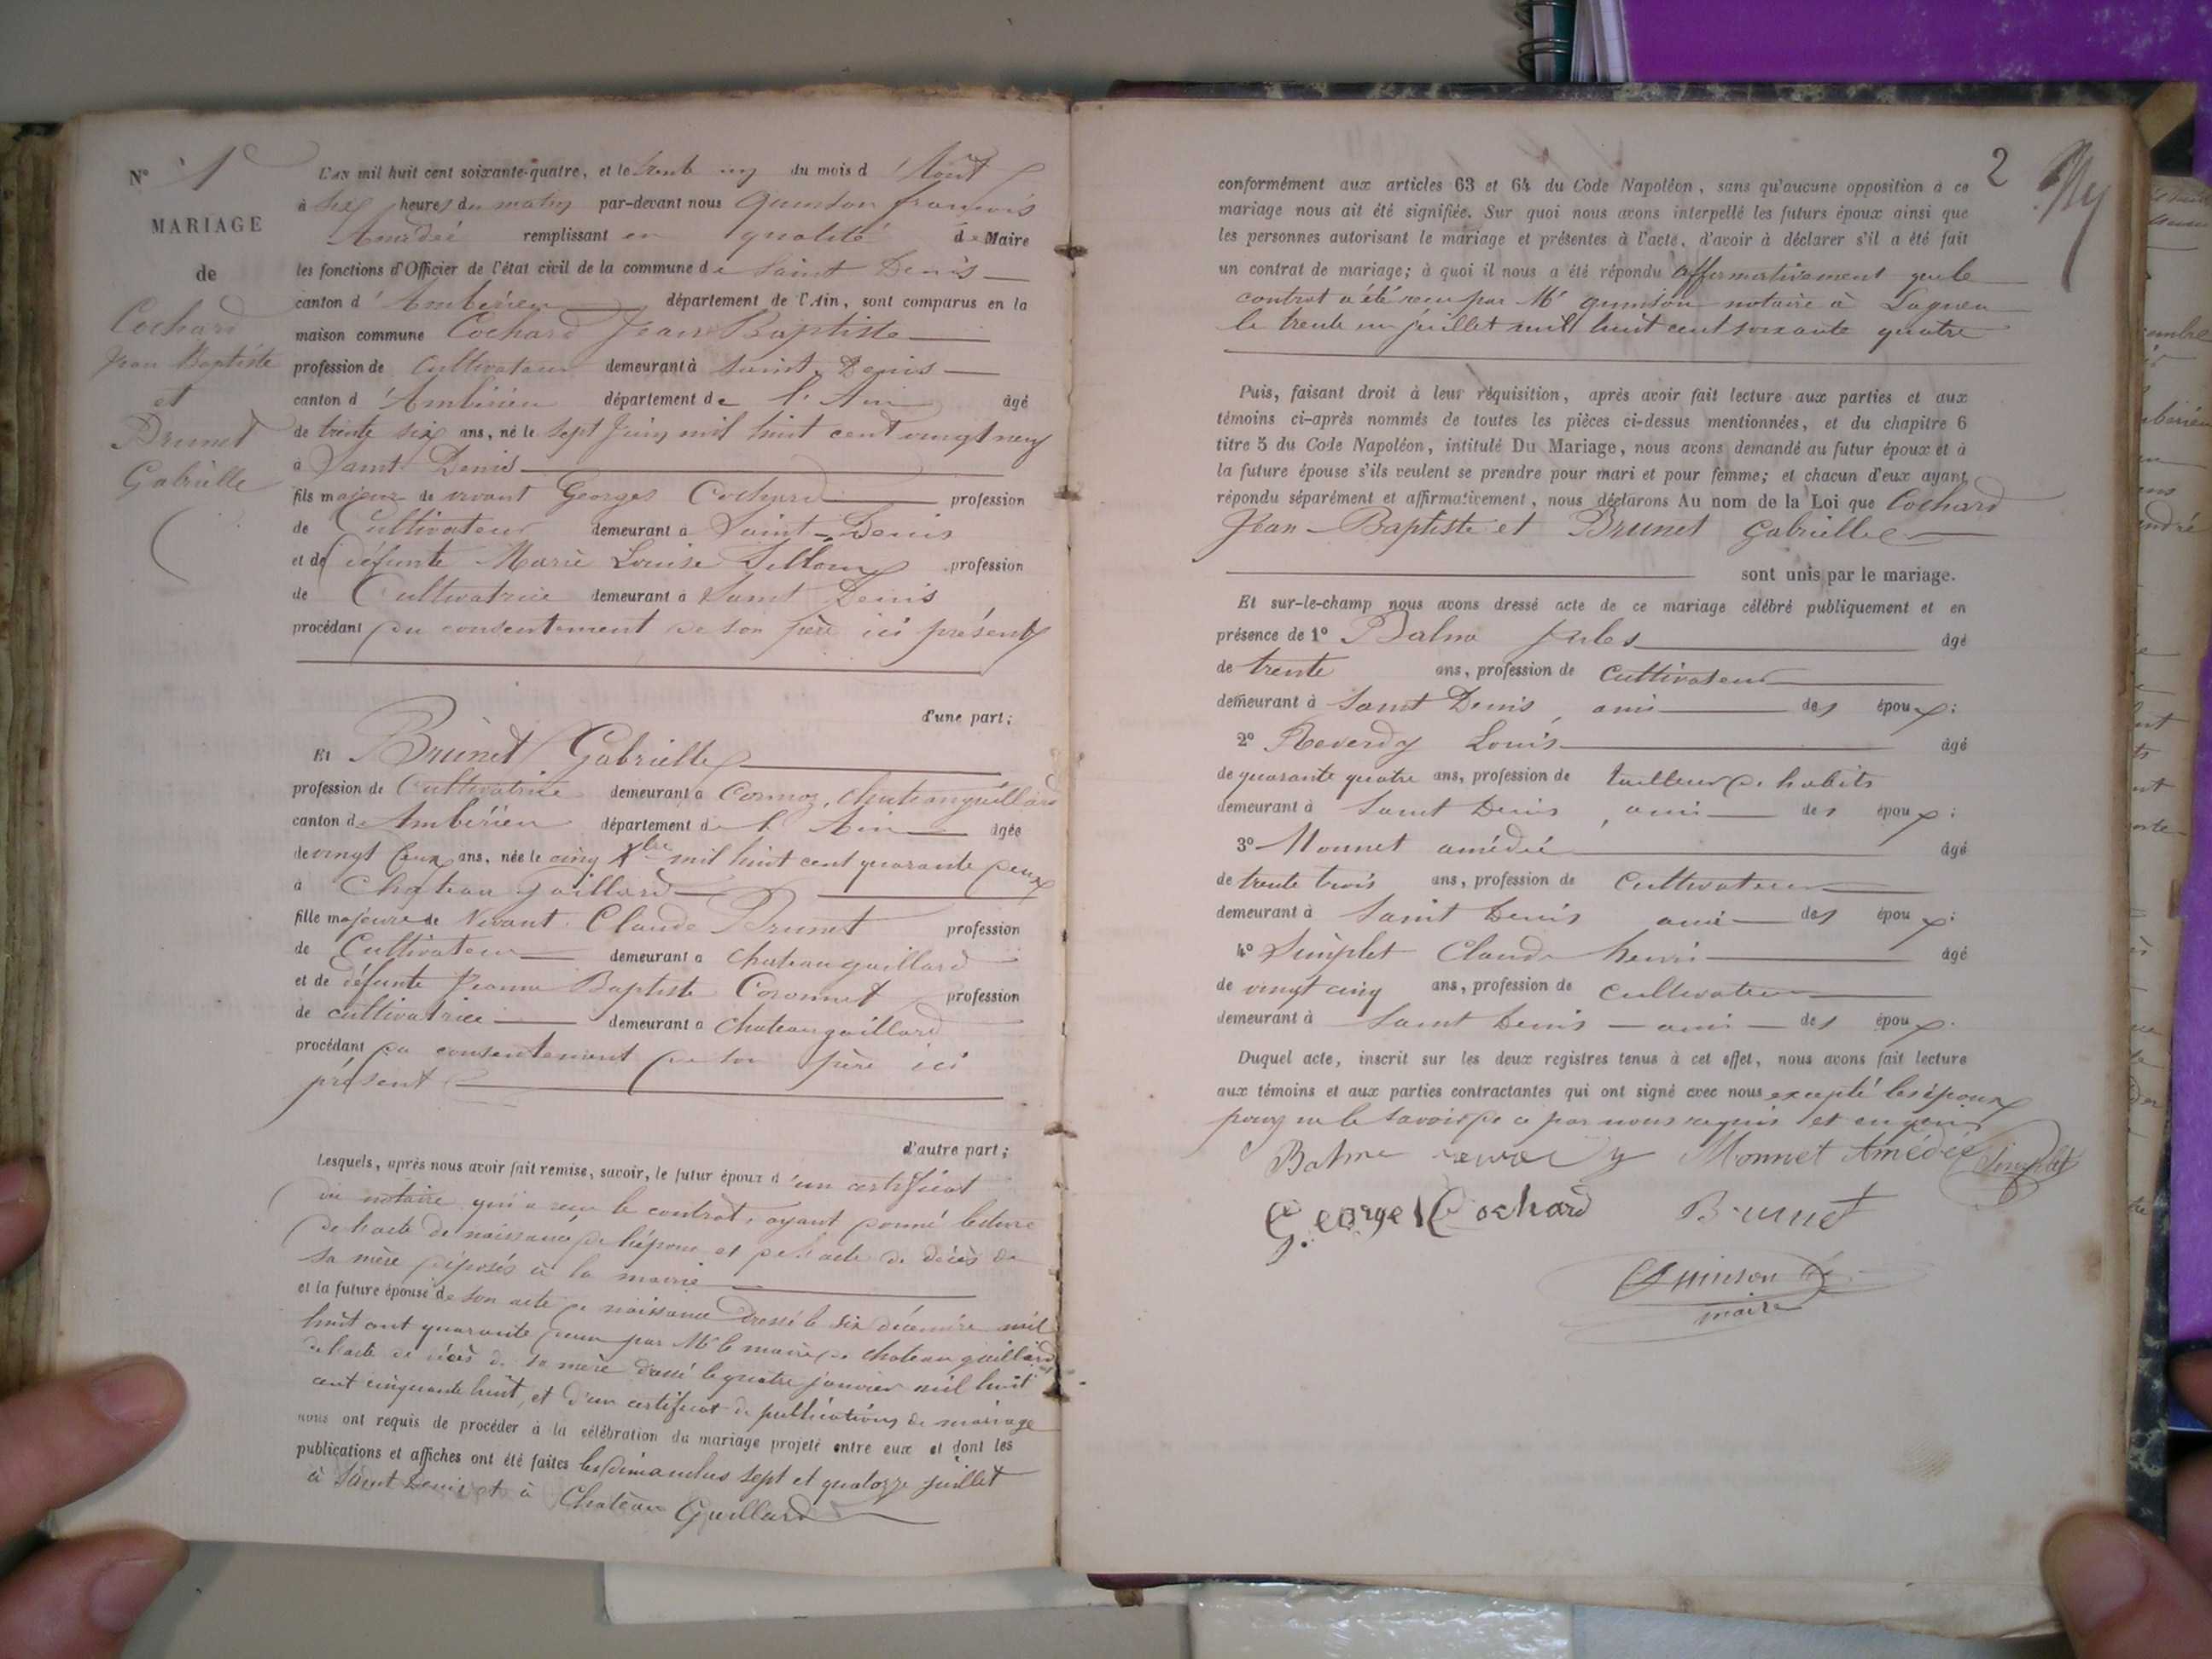 N° 1
MARIAGE
de
Cochard
Jean Baptiste
et
Brunet
Gabrielle
L'AN mil huit cent soixante-quatre, et le trente un du mois d'Août
à six heures du matin par-devant nous Quinson françois
Amédée remplissant en qualité de Maire
les fonctions d'Officier de l'état civil de la commune de Saint Denis
canton d'Ambérieu département de l'Ain, sont comparus en la
maison commune Cochard Jean Baptiste
profession de Cultivateur demeurant à Saint Denis
canton d'Ambérieu département de l'Ain âgé
de trente six ans, né le sept Juin mil huit cent vingt neuf
à Saint Denis
fils majeur de vivant Georges Cochard profession
de Cultivateur demeurant à Saint-Denis
et de défunte Marie Louise profession
de Cultivatrice demeurant à Saint Denis
procédant du consentement de son père ici présent
d'une part;
Et Brunet Gabrielle
profession de Cultivatrice demeurant à Cormoz, chateauguillard
canton de Ambérieu département de l'Ain âgée
de vingt deux ans, née le cinq Xbre mil huit cent quarante deux
à Chateau Gaillard
fille majeure de Vivant Claude Brunet profession
de Cultivateur demeurant à Chateaugaillard
et de défunte Jeanne Baptiste Coronnet profession
de cultivatrice demeurant à Chateaugaillard
procédant du consentement de son père ici
présent
d'autre part;
Lesquels, après nous avoir fait remise, savoir, le futur époux d'un certificat
du notaire qui a reçu le contrat, ayant donné lecture
de l'acte de naissance de l'époux et de l'acte de décès de
sa mère déposés à la mairie
et la future épouse de son acte de naissance dressé le six décembre mil
huit cent quarante deux par Mr le maire de chateau gaillard
de l'acte de décès de sa mère dressé le quatre janvier mil huit
cent cinquante huit, et d'un certificat de publications de mariage
nous ont requis de procéder à la célébration du mariage projeté entre eux et dont les
publications et affiches ont été faites les dimanches sept et quatorze juillet
à Saint Denis et à Chateau Gaillard
2
conformément aux articles 63 et 64 du Code Napoléon, sans qu'aucune opposition à ce
mariage nous ait été signifiée. Sur quoi nous avons interpellé les futurs époux ainsi que
les personnes autorisant le mariage et présentes à l'acte, d'avoir à déclarer s'il a été fait
un contrat de mariage; à quoi il nous a été répondu affirmativement que le
contrat a été reçu par Mr quinson notaire à Lagnieu
le trente un juillet mil huit cent soixante quatre
Puis, faisant droit à leur réquisition, après avoir fait lecture aux parties et aux
témoins ci-après nommés de toutes les pièces ci-dessus mentionnées, et du chapitre 6
titre 5 du Code Napoléon, intitulé Du Mariage, nous avons demandé au futur époux et à
la future épouse s'ils veulent se prendre pour mari et pour femme; et chacun d'eux ayant
répondu séparément et affirmativement, nous déclarons Au nom de la Loi que Cochard
Jean-Baptiste et Brunet Gabrielle
sont unis par le mariage.
Et sur-le-champ nous avons dressé acte de ce mariage célébré publiquement et en
présence de 1° Balme Jules âgé
de trente ans, profession de Cultivateur
demeurant à Saint Denis, ami des époux;
2° Reverdy Louis âgé
de quarante quatre ans, profession de tailleur d'habits
demeurant à Saint Denis, ami des époux;
3° Monnet amédée âgé
de trente trois ans, profession de Cultivateur
demeurant à Saint Denis ami des époux;
4° Simplet Claude henri âgé
de vingt cinq ans, profession de Cultivateur
demeurant à Saint Denis ami des époux.
Duquel acte, inscrit sur les deux registres tenus à cet effet, nous avons fait lecture
aux témoins et aux parties contractantes qui ont signé avec nous excepté les époux
pour ne le savoir de ce par nous requis et enquis
Balme reverdy Monnet Amédée Simplet
George Cochard Brunet
Quinson
maire